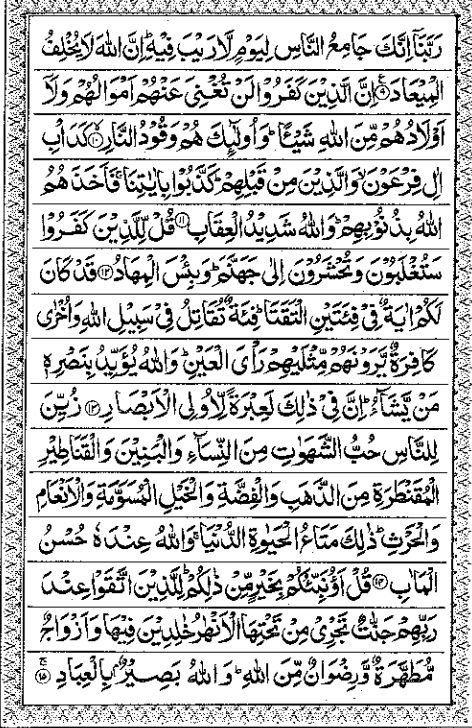 رَبَّنَآ اِنَّكَ جَامِعُ النَّاسِ لِيَوْمٍ لَّا رَيْبَ فِيْهِ ؕ اِنَّ اللّٰهَ لَا يُخْلِفُ
الْمِيْعَادَ ۹ اِنَّ الَّذِيْنَ كَفَرُوْا لَنْ تُغْنِيَ عَنْهُمْ اَمْوَالُهُمْ وَلَآ
اَوْلَادُهُمْ مِّنَ اللّٰهِ شَيْـًٔا ؕ وَاُولٰٓئِكَ هُمْ وَقُوْدُ النَّارِ ۱۰ كَدَاْبِ
اٰلِ فِرْعَوْنَ ۙ وَالَّذِيْنَ مِنْ قَبْلِهِمْ ؕ كَذَّبُوْا بِاٰيٰتِنَا ۚ فَاَخَذَهُمُ
اللّٰهُ بِذُنُوْبِهِمْ ؕ وَاللّٰهُ شَدِيْدُ الْعِقَابِ ۱۱ قُلْ لِّلَّذِيْنَ كَفَرُوْا
سَتُغْلَبُوْنَ وَتُحْشَرُوْنَ اِلٰى جَهَنَّمَ ؕ وَبِئْسَ الْمِهَادُ ۱۲ قَدْ كَانَ
لَكُمْ اٰيَةٌ فِيْ فِئَتَيْنِ الْتَقَتَا ؕ فِئَةٌ تُقَاتِلُ فِيْ سَبِيْلِ اللّٰهِ وَاُخْرٰى
كَافِرَةٌ يَّرَوْنَهُمْ مِّثْلَيْهِمْ رَاْيَ الْعَيْنِ ؕ وَاللّٰهُ يُؤَيِّدُ بِنَصْرِهٖ
مَنْ يَّشَآءُ ؕ اِنَّ فِيْ ذٰلِكَ لَعِبْرَةً لِّاُولِي الْاَبْصَارِ ۱۳ زُيِّنَ
لِلنَّاسِ حُبُّ الشَّهَوٰتِ مِنَ النِّسَآءِ وَالْبَنِيْنَ وَالْقَنَاطِيْرِ
الْمُقَنْطَرَةِ مِنَ الذَّهَبِ وَالْفِضَّةِ وَالْخَيْلِ الْمُسَوَّمَةِ وَالْاَنْعَامِ
وَالْحَرْثِ ؕ ذٰلِكَ مَتَاعُ الْحَيٰوةِ الدُّنْيَا ۚ وَاللّٰهُ عِنْدَهٗ حُسْنُ
الْمَاٰبِ ۱۴ قُلْ اَؤُنَبِّئُكُمْ بِخَيْرٍ مِّنْ ذٰلِكُمْ ؕ لِلَّذِيْنَ اتَّقَوْا عِنْدَ
رَبِّهِمْ جَنّٰتٌ تَجْرِيْ مِنْ تَحْتِهَا الْاَنْهٰرُ خٰلِدِيْنَ فِيْهَا وَاَزْوَاجٌ
مُّطَهَّرَةٌ وَّرِضْوَانٌ مِّنَ اللّٰهِ ؕ وَاللّٰهُ بَصِيْرٌۢ بِالْعِبَادِ ۱۵